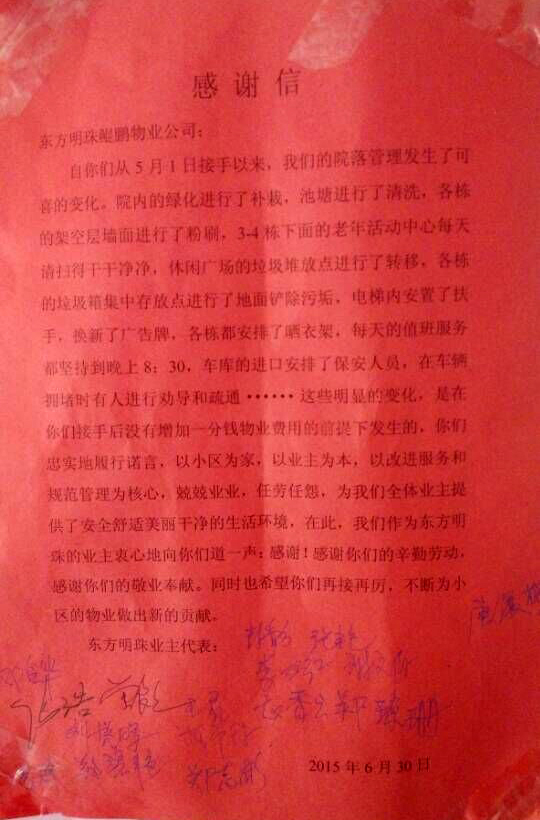 感谢信
东方明珠鲲鹏物业公司：
自你们从5月1日接手以来，我们的院落管理发生了可
喜的变化。院内的绿化进行了补栽，池塘进行了清洗，各栋
的架空层墙面进行了粉刷，3-4栋下面的老年活动中心每天
请扫得干干净净，休闲广场的垃圾堆放点进行了转移，各栋
的垃圾箱集中存放点进行了地面铲除污垢，电梯内安置了扶
手，换新了广告牌，各栋都安排了晒衣架，每天的值班服务
都坚持到晚上8：30，车库的进口安排了保安人员，在车辆
拥堵时有人进行劝导和疏通······这些明显的变化，是在
你们接手后没有增加一分钱物业费用的前提下发生的，你们
忠实地履行诺言，以小区为家，以业主为本，以改进服务和
规范管理为核心，兢兢业业，任劳任怨，为我们全体业主提
供了安全舒适美丽干净的生活环境，在此，我们作为东方明
珠的业主衷心地向你们道一声：感谢！感谢你们的辛勤劳动，
感谢你们的敬业奉献。同时也希望你们再接再厉，不断为小
区的物业做出新的贡献。
东方明珠业主代表：
2015年6月30日